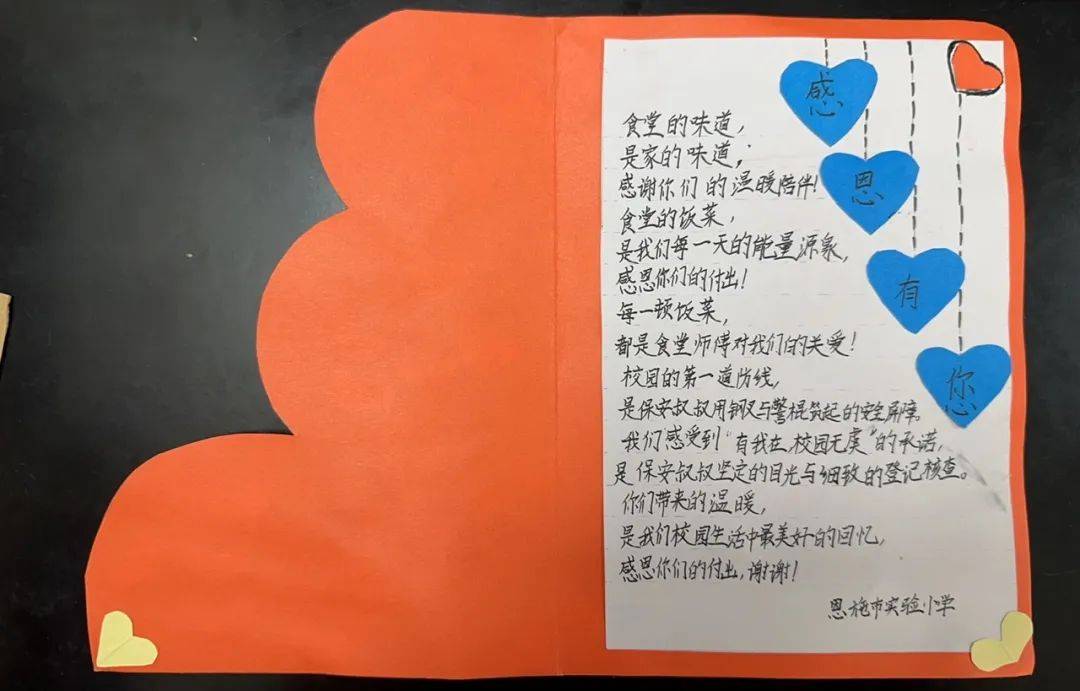 感
恩
有
您
食堂的味道，
是家的味道，
感谢你们的温暖陪伴！
食堂的饭菜，
是我们每一天的能量源泉，
感恩你们的付出！
每一顿饭菜，
都是食堂师傅对我们的关爱！
校园的第一道防线，
是保安叔叔用钢叉与警棍筑起的安全屏障。
我们感受到“有我在，校园无虞”的承诺，
是保安叔叔坚定的目光与细致的登记核查。
你们带来的温暖，
是我们校园生活中最美好的回忆，
感恩你们的付出，谢谢！
恩施市实验小学